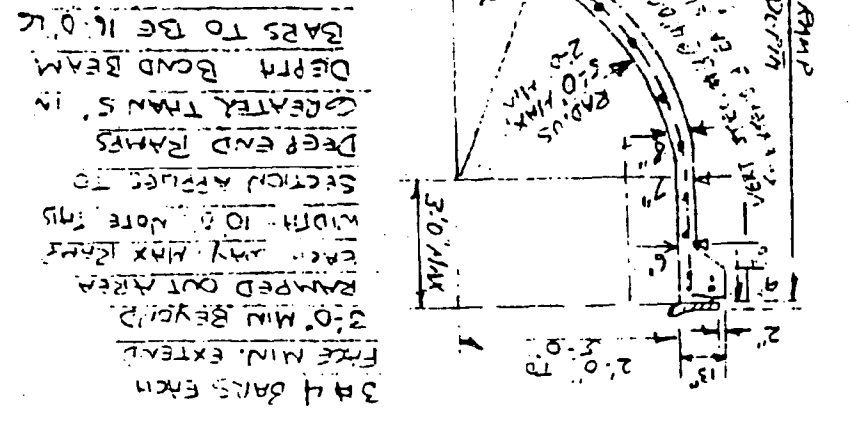 3 #4 BARS EACH
FACE MIN. EXTEND
3'-0" MIN BEYOND
RAMPED OUT AREA
EACH WAY MAX RAMP
WIDTH 10'0" NOTE THIS
SECTION APPLIES TO
DEEP END RAMPS
GREATER THAN 5' IN
DEPTH BOND BEAM
BARS TO BE 16" O/C
2'-0" TO
5'-0"
13"
2"
3'-0" MAX
6"
7"
8"
RADIUS
5'-0" MAX
2'-0" MIN
VERT STEEL #3
RAMP
DEPTH